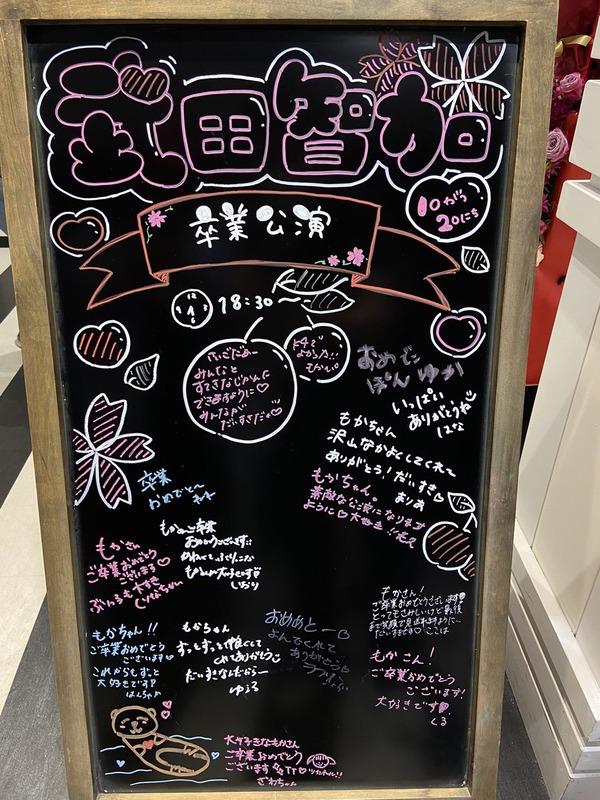 武田智加
10がつ
20にち
卒業公演
18:30〜
さいごだあー
みんなと
すてきなじかんに
できますように♡
みんなが
だいすきだよ♡
おめでた
ぽん ゆか
いっぱい
ありがとうね
もかちゃん
沢山なかよくしてくれて
ありがとう!だいすき♡
まりあ
もかちゃん。
素敵な公演になります
ように♡大好き!!
卒業
おめでと〜
もかさん
ご卒業おめでとう
ございます
大すき
もかちゃんご卒業
おめでとうございます!!
しおり
もかちゃん!!
ご卒業おめでとう
ございます♡
これからもずっと
大好きです
もかちゃん
ずっとずっと仲良くして
くれてありがとう
だいすきなんだから〜
ゆうろ
おめめあと—
よんでくれて
ありがとう
もかさん!
ご卒業おめでとうございます
とってもさみしいけど最後
まで笑顔で見送れますように〜
だいすきです♡ ここは
もかさん!
ご卒業おめでとう
ございます!
大好きです
くる
大好きなもかさん
ご卒業おめでとう
ございます
ざわちゃん